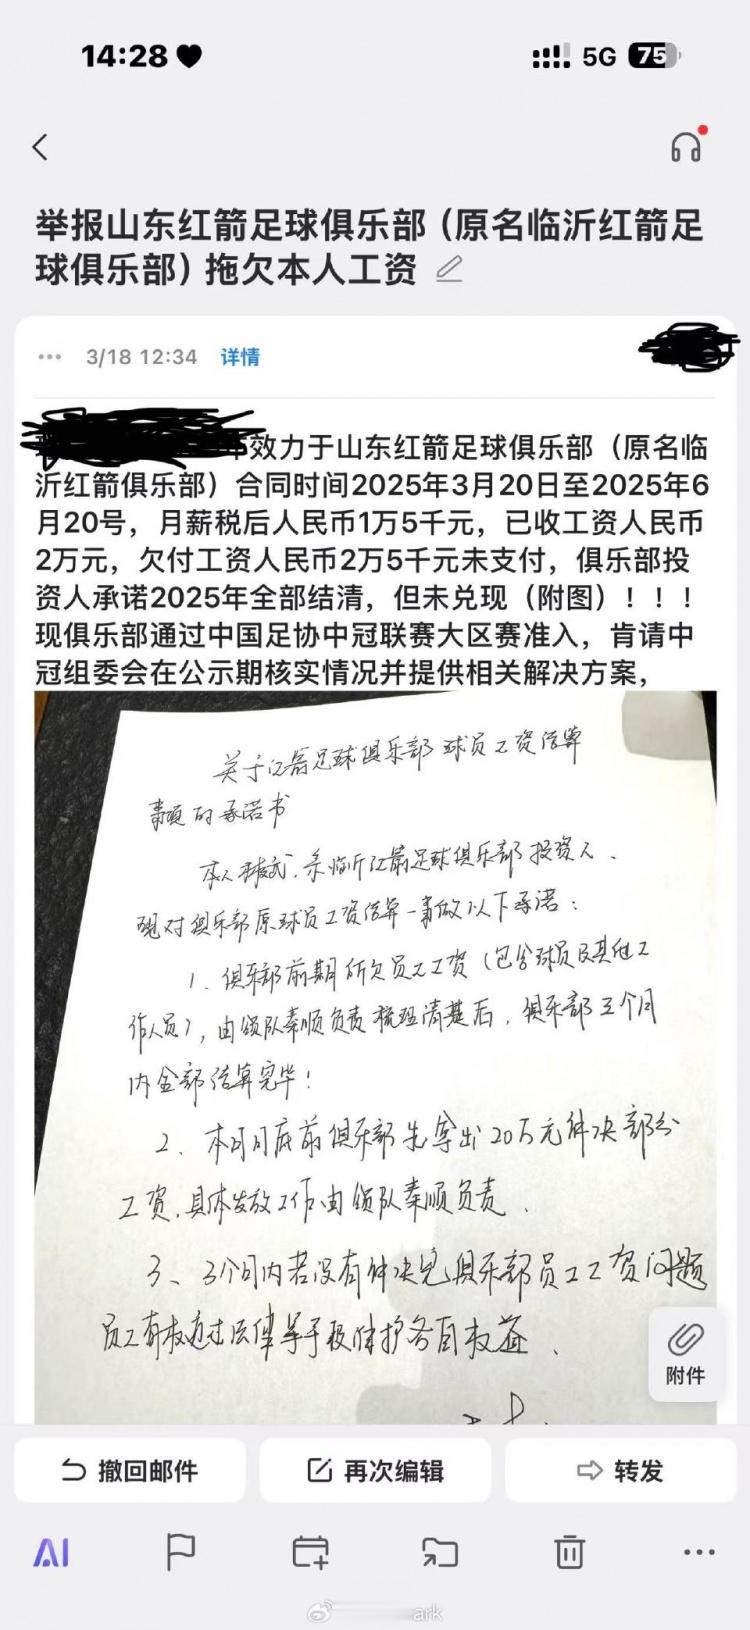 14:28
5G
75
举报山东红箭足球俱乐部（原名临沂红箭足
球俱乐部）拖欠本人工资
3/18 12:34 详情
效力于山东红箭足球俱乐部（原名临
沂红箭俱乐部）合同时间2025年3月20日至2025年6
月20号，月薪税后人民币1万5千元，已收工资人民币
2万元，欠付工资人民币2万5千元未支付，俱乐部投
资人承诺2025年全部结清，但未兑现（附图）！！！
现俱乐部通过中国足协中冠联赛大区赛准入，肯请中
冠组委会在公示期核实情况并提供相关解决方案，
关于红箭足球俱乐部球员工资结算
事项的承诺书
本人 系临沂红箭足球俱乐部投资人、
现对俱乐部原球员工资结算一事做以下承诺：
1、俱乐部前期所欠员工工资（包含球员及其他工
作人员），由领队秦顺负责梳理清楚后，俱乐部三个月
内全部结算完毕！
2、本月月底前俱乐部先拿出20万元解决部分
工资，具体发放工作由领队秦顺负责、
3、3个月内若没有解决完俱乐部员工工资问题
员工有权通过法律等手段维护各自权益、
附件
撤回邮件
再次编辑
转发
AI
ark